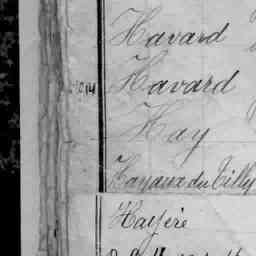 Havard
Havard
Hay
Hayaux du Tilly
Hayère